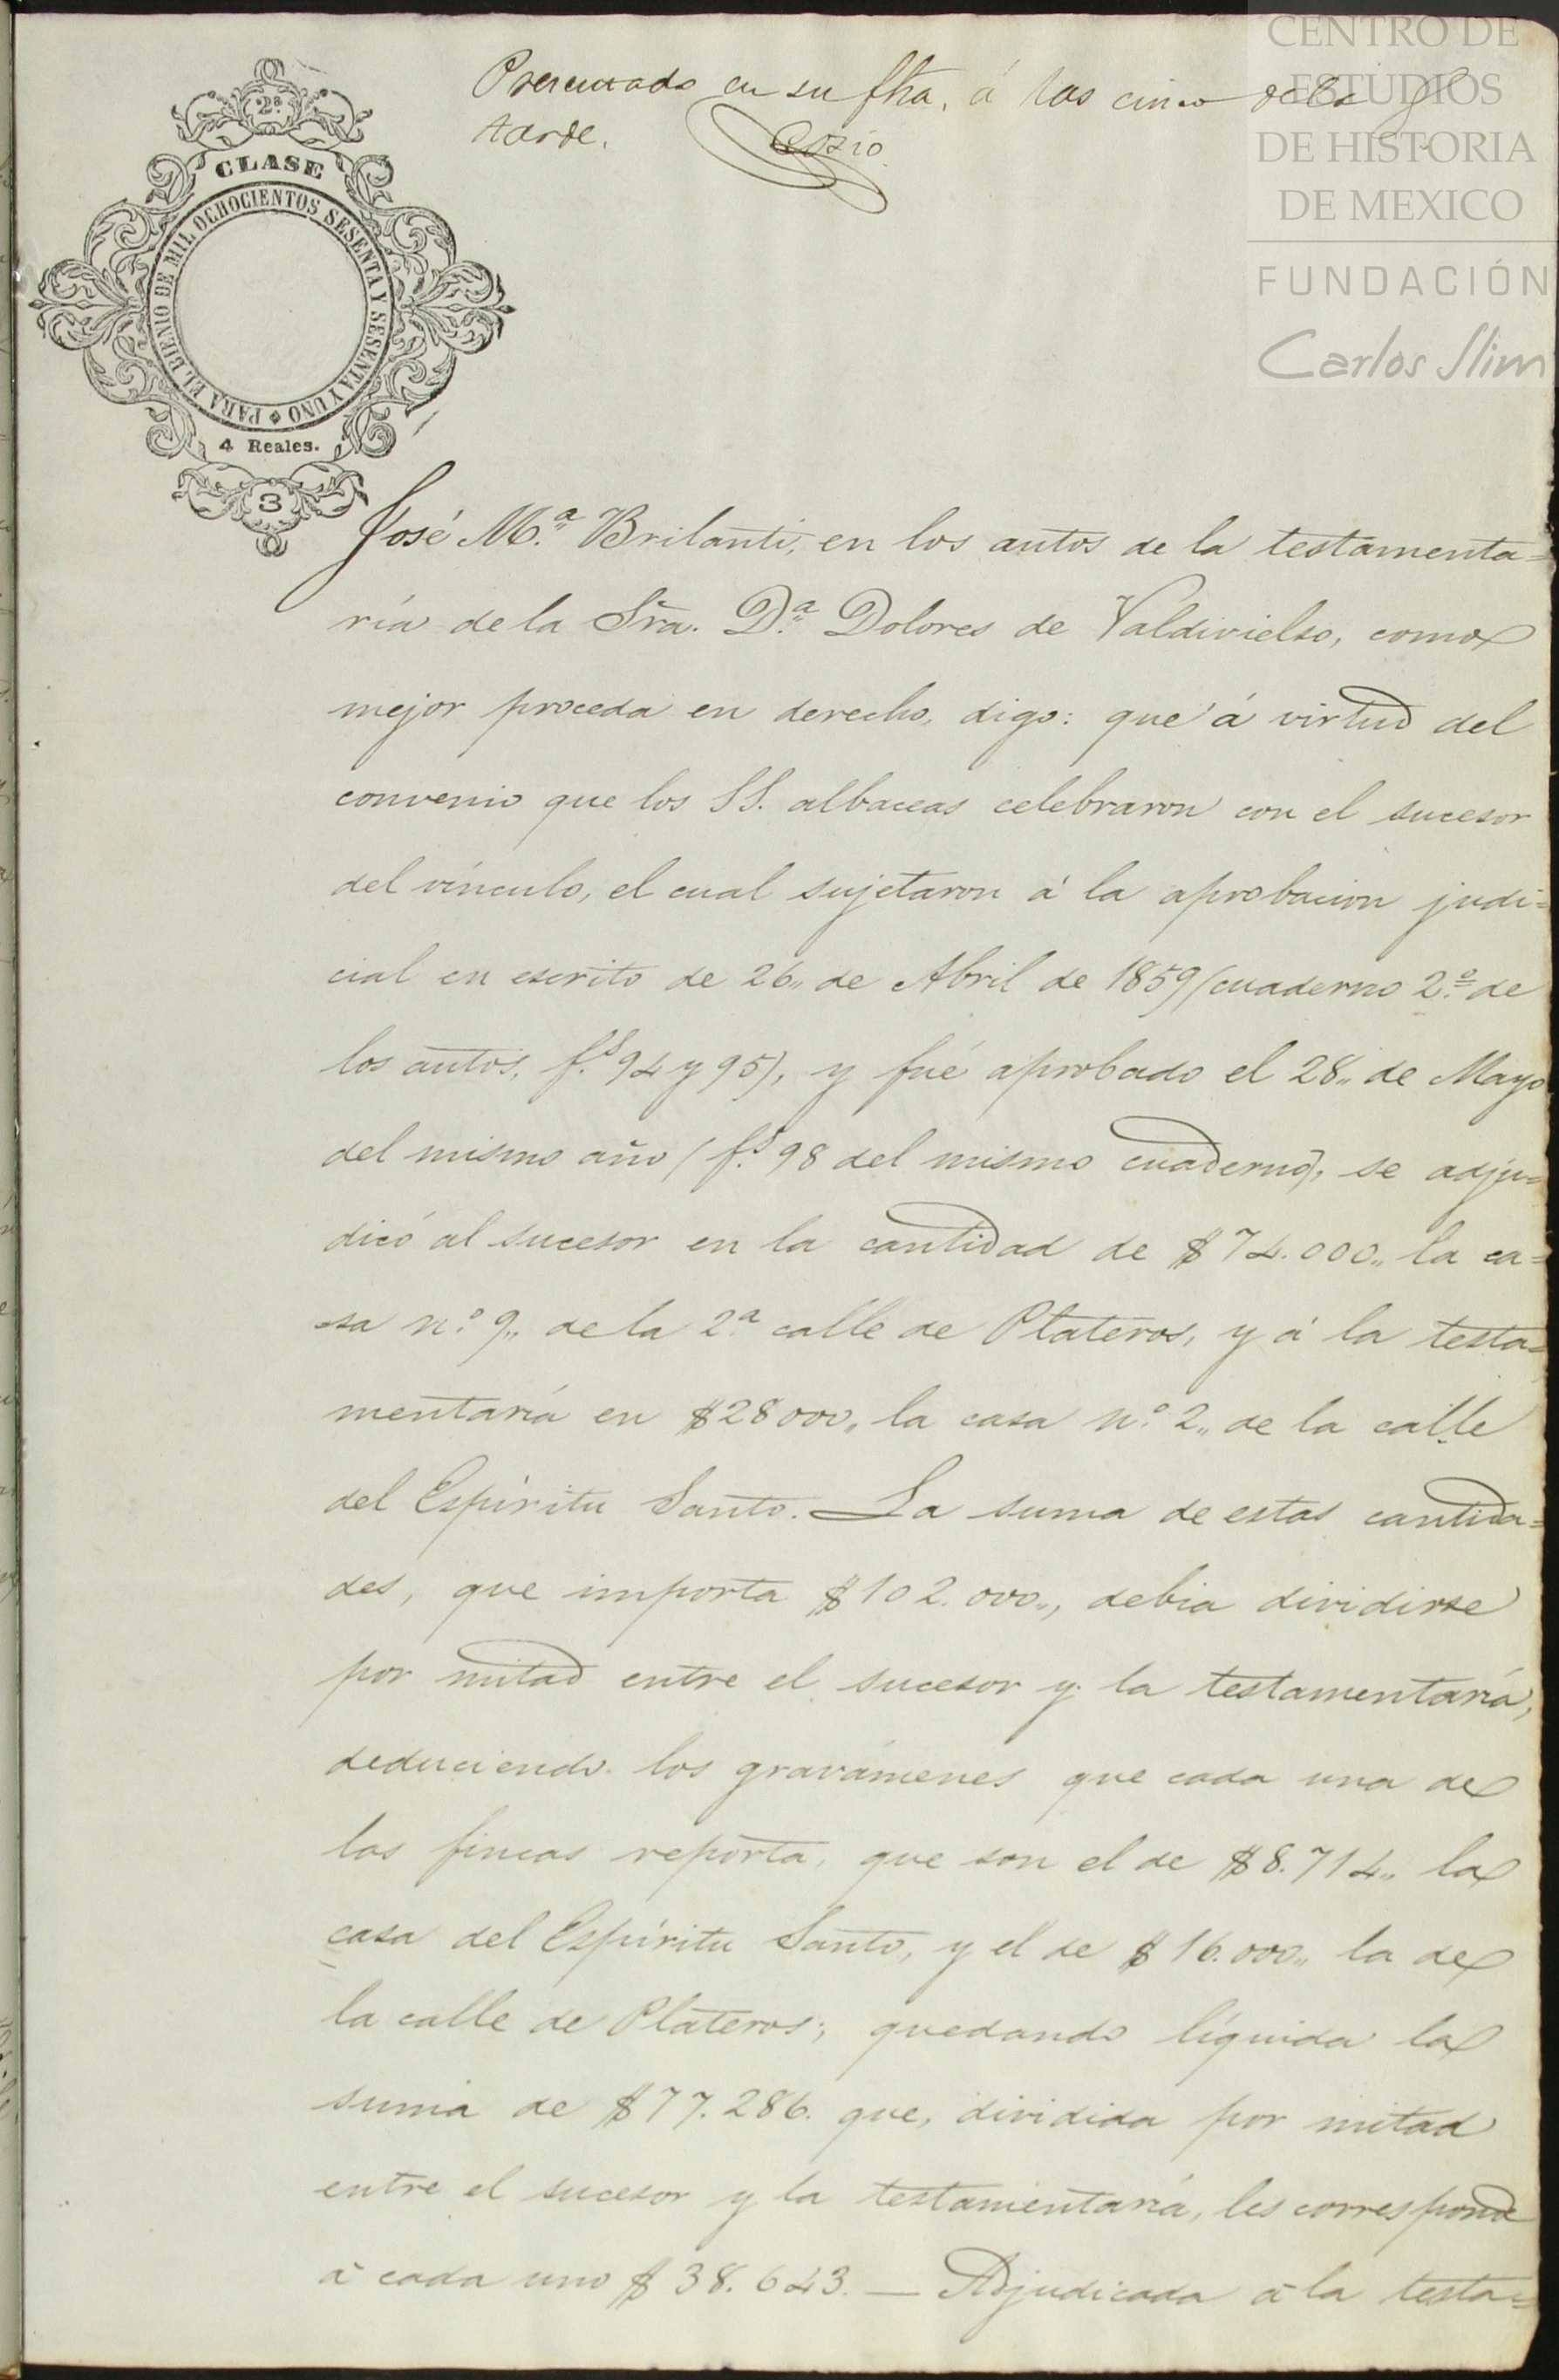 CENTRO DE
ESTUDIOS
DE HISTORIA
DE MEXICO
FUNDACIÓN
Carlos Slim
Presentado en su fha, á las cinco de la
tarde.
Cosio
2ª
CLASE
PARA EL BIENIO DE MIL OCHOCIENTOS SESENTA Y SESENTA Y UNO
4 Reales.
3
José M.ª Brilanti, en los autos de la testamenta=
ría de la Sra. D.ª Dolores de Valdivielso, como
mejor proceda en derecho, digo: que á virtud del
convenio que los SS. albaceas celebraron con el sucesor
del vínculo, el cual sujetaron á la aprobacion judi=
cial en escrito de 26,, de Abril de 1859 (cuaderno 2.º de
los autos, f.s 94 y 95), y fué aprobado el 28,, de Mayo
del mismo año (f.s 98 del mismo cuaderno), se adju=
dicó al sucesor en la cantidad de $74.000,, la ca=
sa n.º 9,, de la 2.ª calle de Plateros, y á la testa=
mentaría en $28000,, la casa n.º 2,, de la calle
del Espíritu Santo. La suma de estas cantida=
des, que importa $102.000,,, debia dividirse
por mitad entre el sucesor y la testamentaría,
deduciendo los gravámenes que cada una de
las fincas reporta, que son el de $8.714,, la
casa del Espíritu Santo, y el de $16.000,, la de
la calle de Plateros; quedando líquida la
suma de $77.286. que, dividida por mitad
entre el sucesor y la testamentaría, les corresponde
á cada uno $38.643. — Adjudicada á la testa=